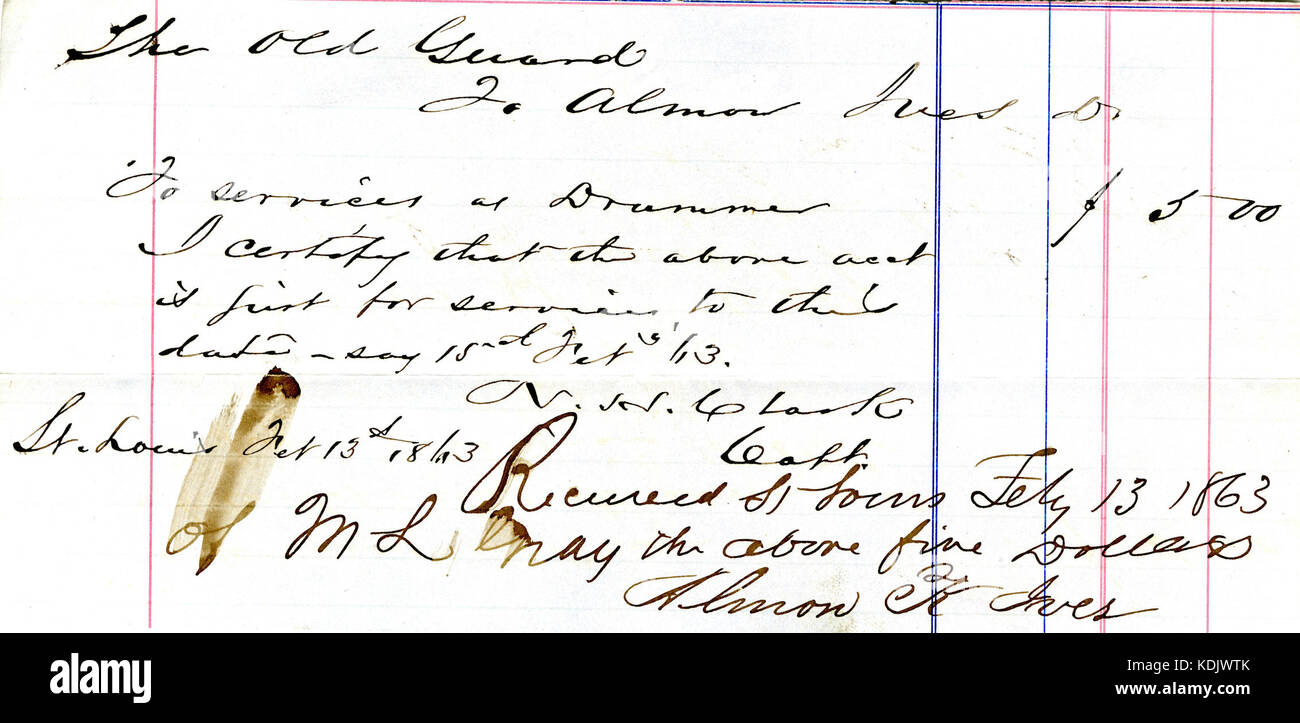 The Old Guard
To Almon Ives Dr
To services as Drummer $ 5 00
I certify that the above acct
is just for services to this
date - say 13th Feb 1863.
N. H. Clark
Capt.
St. Louis Feb 13th 1863
Received St Louis Feby 13 1863
of M L Gray the above five Dollars
Almon K Ives
alamy
Image ID: KDJWTK
www.alamy.com